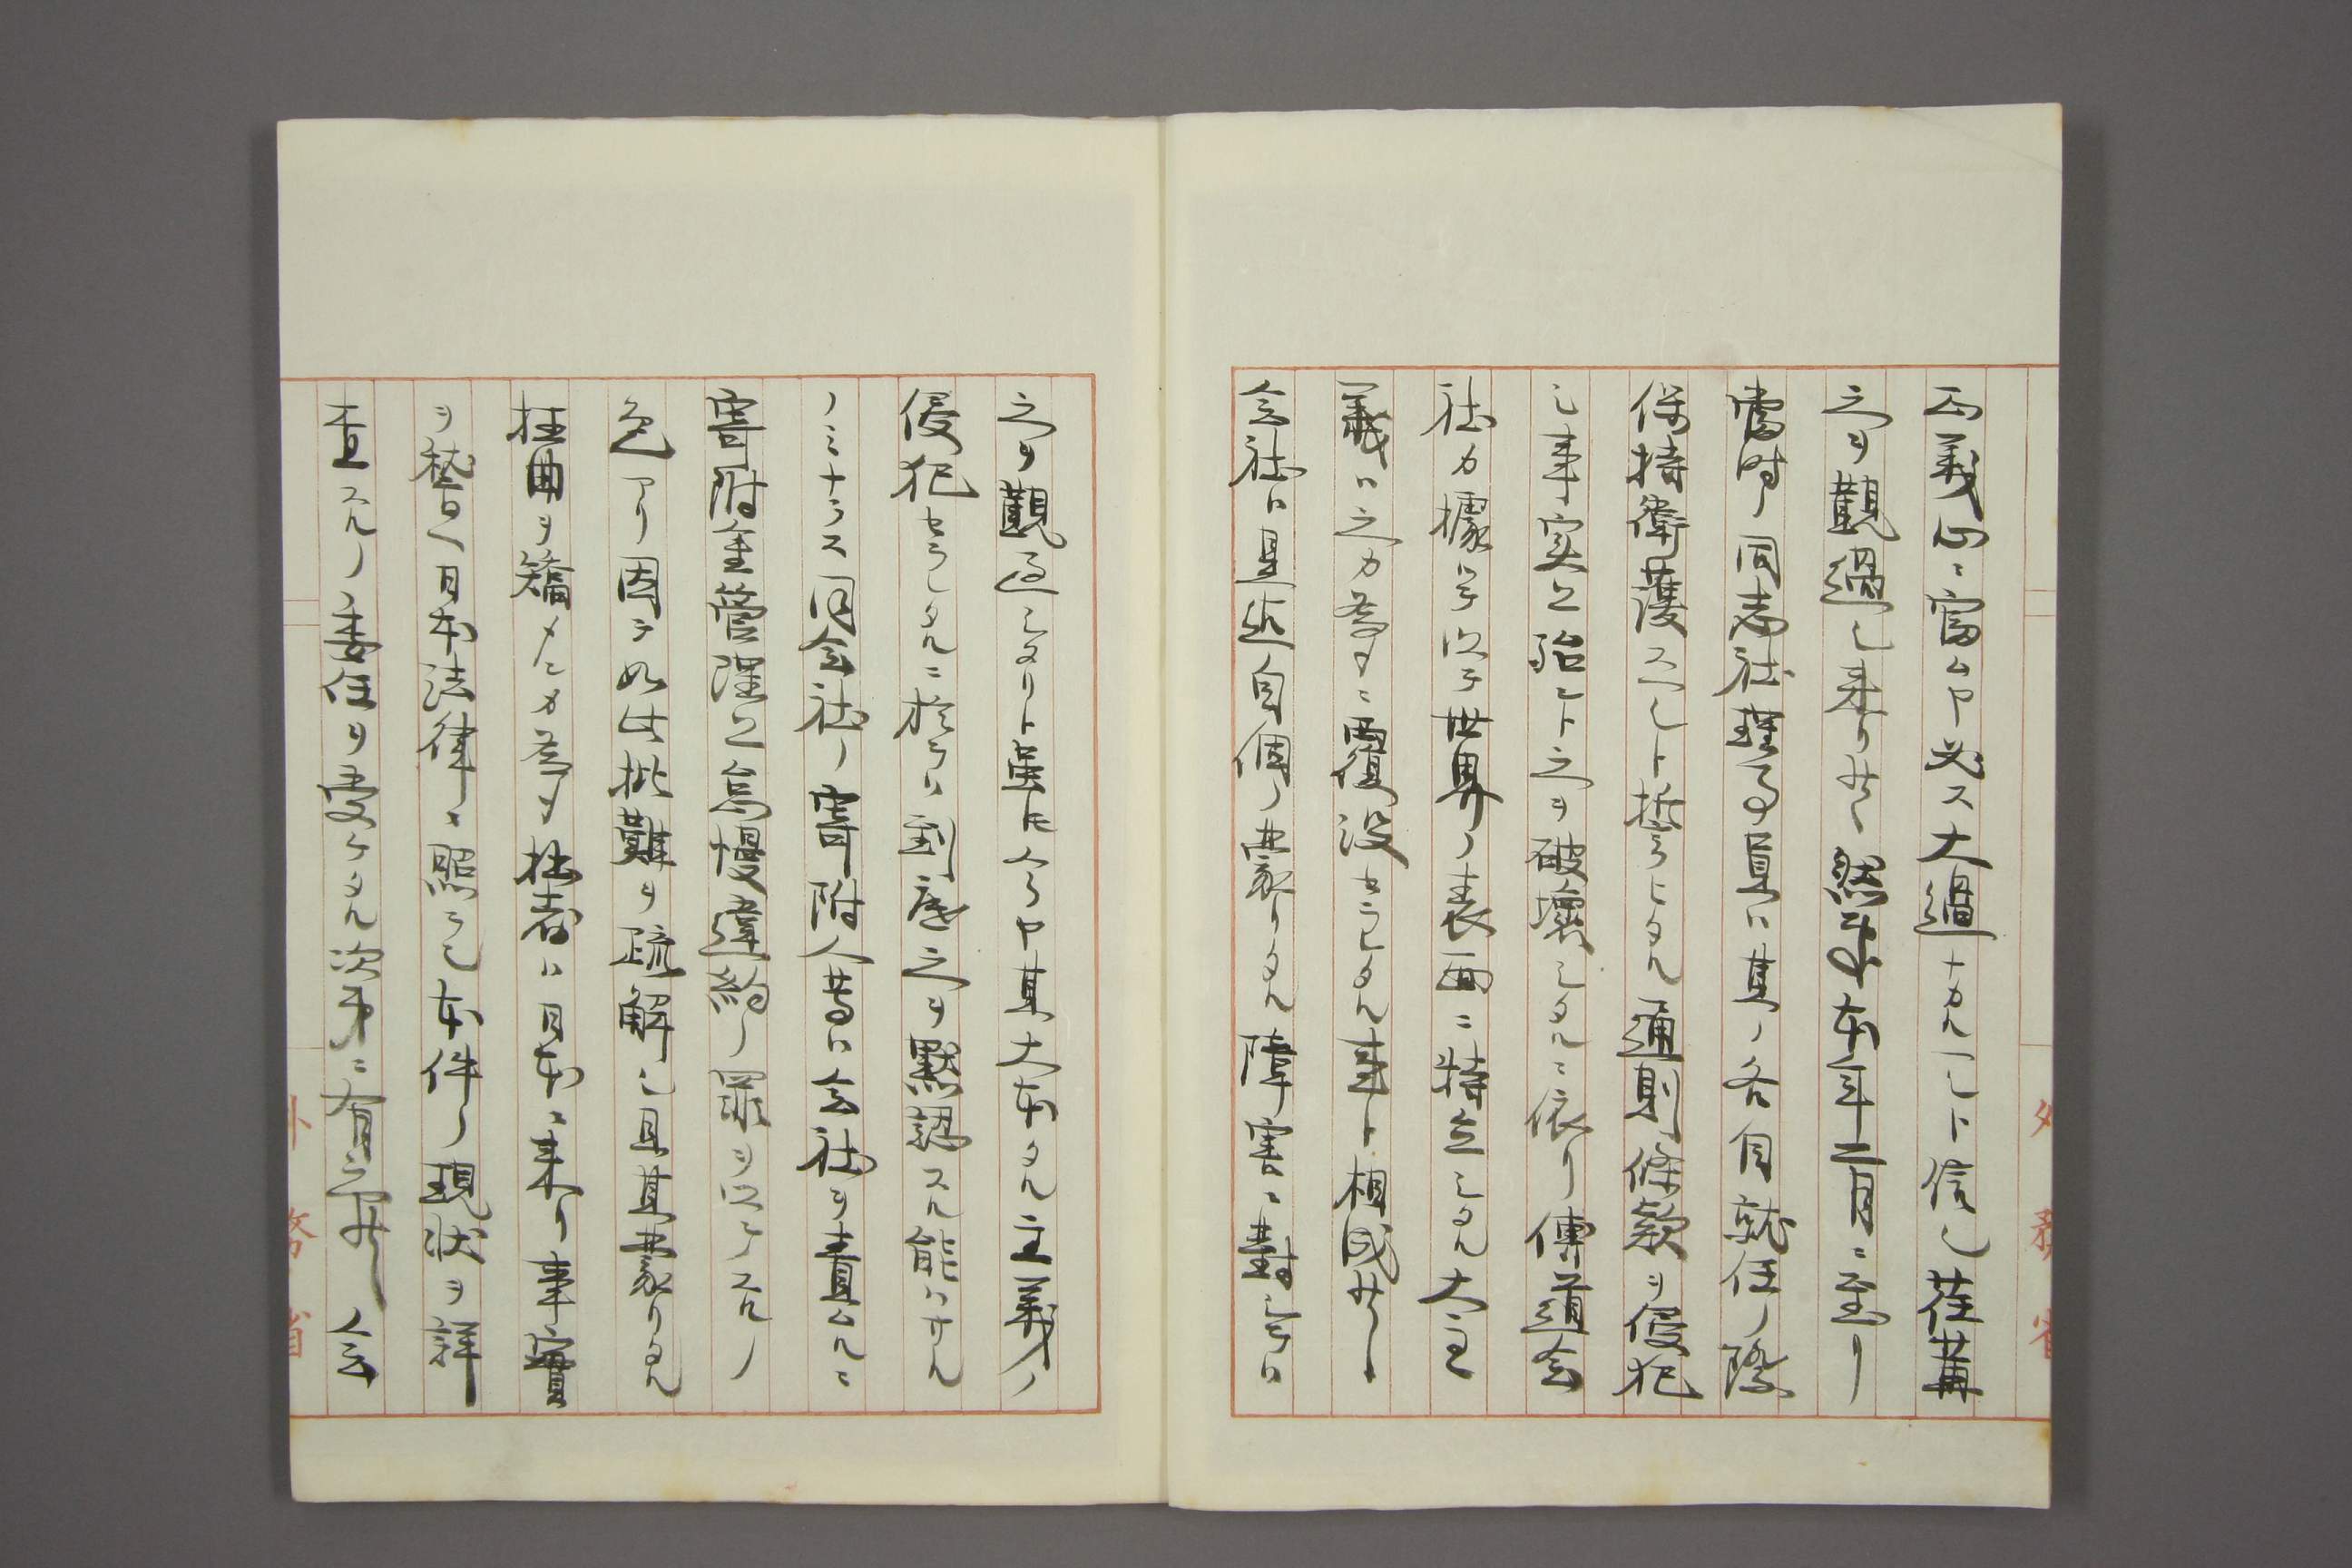 正義心ニ富ムヤ必ス大過ナカルヘシト信シ荏苒
之ヲ觀過シ来リ候然ルニ本年二月ニ至リ
當時ノ同志社理事員ハ其ノ各自就任ノ際
保持衛護スヘシト誓ヒタル通則條款ヲ侵犯
シ事実上殆ント之ヲ破壊シタルニ依リ傳道会
社カ據テ以テ世界ノ表面ニ特立シタル大主
義ハ之カ為メニ覆没セラレタル事ト相成候
会社ハ是迄自個ノ蒙リタル障害ニ對シテハ
之ヲ觀過シタリト雖モ今ヤ其大本タル主義ノ
侵犯セラレタルニ於テハ到底之ヲ黙認スル能ハサル
ノミナラス同会社ノ寄附人等ハ会社ヲ責ムルニ
寄附金管理上怠慢違約ノ罪ヲ以テスルノ
色アリ因テ如此批難ヲ疏解シ且其蒙リタル
枉曲ヲ矯メンカ為メ拙者ハ日本ニ来リ事實
ヲ稽ヘ日本法律ニ照ラシ本件ノ現状ヲ詳
査スルノ委任ヲ受ケタル次第ニ有之候 会
外務省
外務省